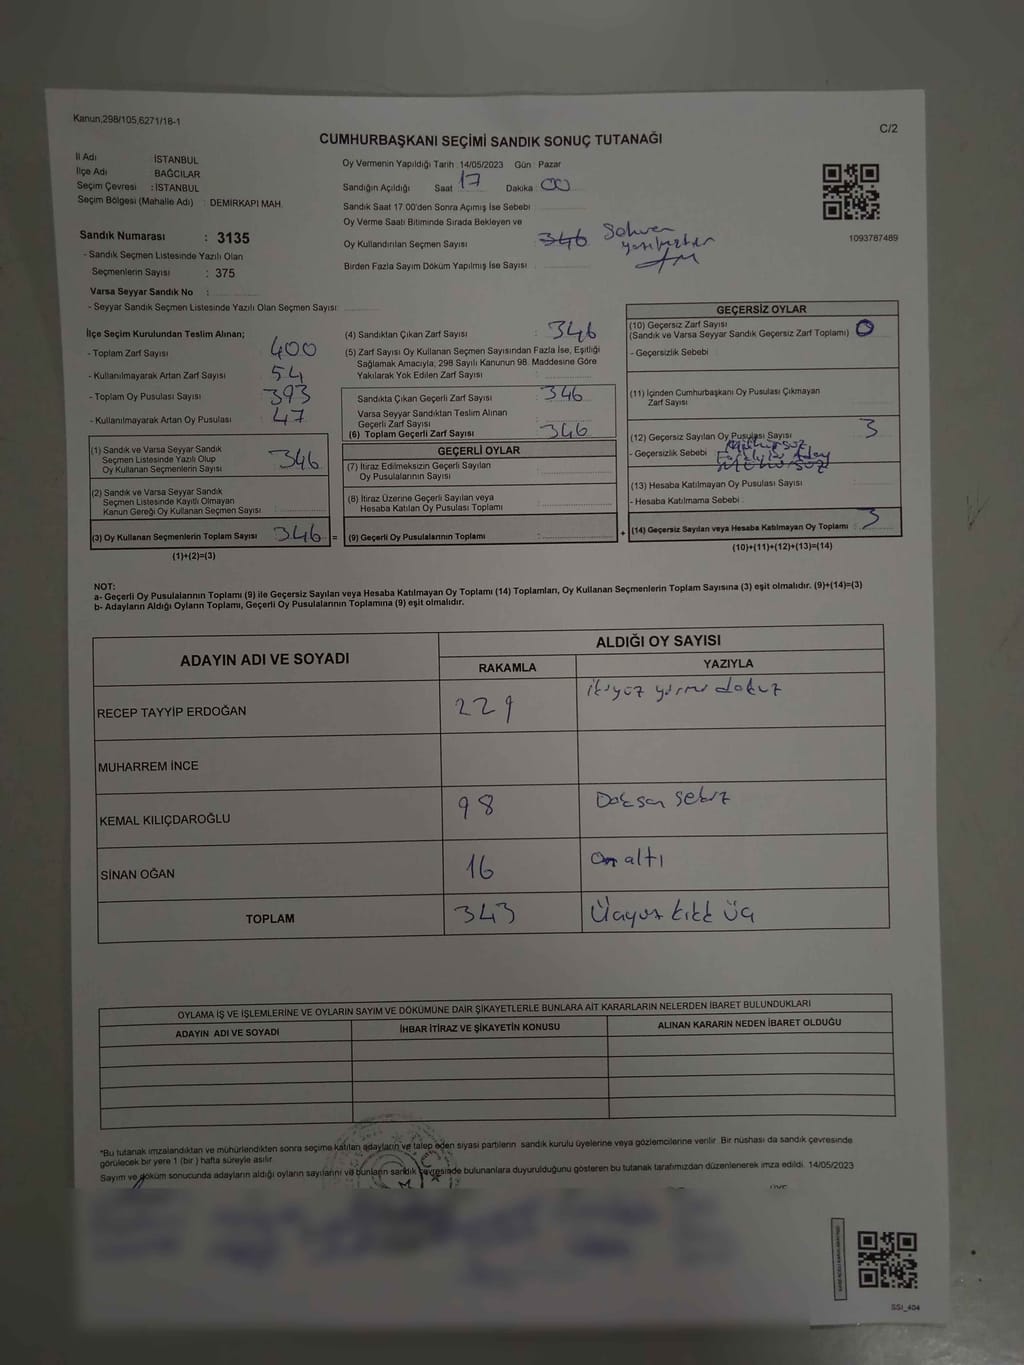 Kanun,298/105,6271/18-1
C/2
CUMHURBAŞKANI SEÇİMİ SANDIK SONUÇ TUTANAĞI
İl Adı İSTANBUL
İlçe Adı BAĞCILAR
Seçim Çevresi : İSTANBUL
Seçim Bölgesi (Mahalle Adı) : DEMİRKAPI MAH.
Oy Vermenin Yapıldığı Tarih 14/05/2023 Gün Pazar
Sandığın Açıldığı Saat 17 Dakika 00
Sandık Saat 17:00'den Sonra Açımış İse Sebebi
Oy Verme Saati Bitiminde Sırada Bekleyen ve
Oy Kullandırılan Seçmen Sayısı 346 Sehven
Birden Fazla Sayım Döküm Yapılmış İse Sayısı
1093787489
Sandık Numarası : 3135
- Sandık Seçmen Listesinde Yazılı Olan
Seçmenlerin Sayısı : 375
Varsa Seyyar Sandık No :
- Seyyar Sandık Seçmen Listesinde Yazılı Olan Seçmen Sayısı:
İlçe Seçim Kurulundan Teslim Alınan;
- Toplam Zarf Sayısı 400
- Kullanılmayarak Artan Zarf Sayısı 54
- Toplam Oy Pusulası Sayısı 393
- Kullanılmayarak Artan Oy Pusulası 47
(1) Sandık ve Varsa Seyyar Sandık
Seçmen Listesinde Yazılı Olup
Oy Kullanan Seçmenlerin Sayısı 346
(2) Sandık ve Varsa Seyyar Sandık
Seçmen Listesinde Kayıtlı Olmayan
Kanun Gereği Oy Kullanan Seçmen Sayısı :
(3) Oy Kullanan Seçmenlerin Toplam Sayısı 346
(1)+(2)=(3)
(4) Sandıktan Çıkan Zarf Sayısı : 346
(5) Zarf Sayısı Oy Kullanan Seçmen Sayısından Fazla İse, Eşitliği
Sağlamak Amacıyla, 298 Sayılı Kanunun 98. Maddesine Göre
Yakılarak Yok Edilen Zarf Sayısı
Sandıkta Çıkan Geçerli Zarf Sayısı : 346
Varsa Seyyar Sandıktan Teslim Alınan
Geçerli Zarf Sayısı
(6) Toplam Geçerli Zarf Sayısı 346
GEÇERLİ OYLAR
(7) İtiraz Edilmeksizin Geçerli Sayılan
Oy Pusulalarının Sayısı
(8) İtiraz Üzerine Geçerli Sayılan veya
Hesaba Katılan Oy Pusulası Toplamı
= (9) Geçerli Oy Pusulalarının Toplamı :
GEÇERSİZ OYLAR
(10) Geçersiz Zarf Sayısı
(Sandık ve Varsa Seyyar Sandık Geçersiz Zarf Toplamı) 0
- Geçersizlik Sebebi
(11) İçinden Cumhurbaşkanı Oy Pusulası Çıkmayan
Zarf Sayısı
(12) Geçersiz Sayılan Oy Pusulası Sayısı 3
- Geçersizlik Sebebi
(13) Hesaba Katılmayan Oy Pusulası Sayısı
- Hesaba Katılmama Sebebi
+ (14) Geçersiz Sayılan veya Hesaba Katılmayan Oy Toplamı : 3
(10)+(11)+(12)+(13)=(14)
NOT:
a- Geçerli Oy Pusulalarının Toplamı (9) ile Geçersiz Sayılan veya Hesaba Katılmayan Oy Toplamı (14) Toplamları, Oy Kullanan Seçmenlerin Toplam Sayısına (3) eşit olmalıdır. (9)+(14)=(3)
b- Adayların Aldığı Oyların Toplamı, Geçerli Oy Pusulalarının Toplamına (9) eşit olmalıdır.
ADAYIN ADI VE SOYADI
ALDIĞI OY SAYISI
RAKAMLA YAZIYLA
RECEP TAYYİP ERDOĞAN 229 ikiyüz yirmi dokuz
MUHARREM İNCE
KEMAL KILIÇDAROĞLU 98 Doksan Sekiz
SİNAN OĞAN 16 On altı
TOPLAM 343 Üçyüz kırk Üç
OYLAMA İŞ VE İŞLEMLERİNE VE OYLARIN SAYIM VE DÖKÜMÜNE DAİR ŞİKAYETLERLE BUNLARA AİT KARARLARIN NELERDEN İBARET BULUNDUKLARI
ADAYIN ADI VE SOYADI İHBAR İTİRAZ VE ŞİKAYETİN KONUSU ALINAN KARARIN NEDEN İBARET OLDUĞU
*Bu tutanak imzalandıktan ve mühürlendikten sonra seçime katılan adayların ve talep eden siyasi partilerin sandık kurulu üyelerine veya gözlemcilerine verilir. Bir nüshası da sandık çevresinde
görülecek bir yere 1 (bir) hafta süreyle asılır.
Sayım ve döküm sonucunda adayların aldığı oyların sayılarını ve bunların sandık çevresinde bulunanlara duyurulduğunu gösteren bu tutanak tarafımızdan düzenlenerek imza edildi. 14/05/2023
SSİ_404